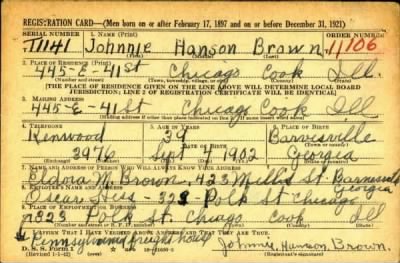 REGISTRATION CARD—(Men born on or after February 17, 1897 and on or before December 31, 1921)
SERIAL NUMBER 1. NAME (Print) ORDER NUMBER
T1141 Johnnie Hanson Brown 11106
(First) (Middle) (Last)
2. PLACE OF RESIDENCE (Print)
445-E-41St Chicago Cook Ill.
(Number and street) (Town, township, village, or city) (County) (State)
[THE PLACE OF RESIDENCE GIVEN ON THE LINE ABOVE WILL DETERMINE LOCAL BOARD
JURISDICTION; LINE 2 OF REGISTRATION CERTIFICATE WILL BE IDENTICAL]
3. MAILING ADDRESS
445-E-41St Chicago Cook Ill
4. TELEPHONE 5. AGE IN YEARS 6. PLACE OF BIRTH
Kenwood 39 Barvesville
DATE OF BIRTH
2976 Sept 1902 Georgia
(Exchange) (Number)
7. NAME AND ADDRESS OF PERSON WHO WILL ALWAYS KNOW YOUR ADDRESS
M Brown, 423 Mills St. Barnesville Georgia
8. EMPLOYER'S NAME AND ADDRESS
Oscar Hess - 323 - Polk St Chicago
9. PLACE OF EMPLOYMENT OR BUSINESS
323 Polk St. Chicago Cook Ill
(Number and street or R. F. D. number) (Town) (County) (State)
I AFFIRM THAT I HAVE VERIFIED ABOVE ANSWERS AND THAT THEY ARE TRUE.
Pennsylvania freight house
D. S. S. Form 1
Johnnie Hanson Brown.